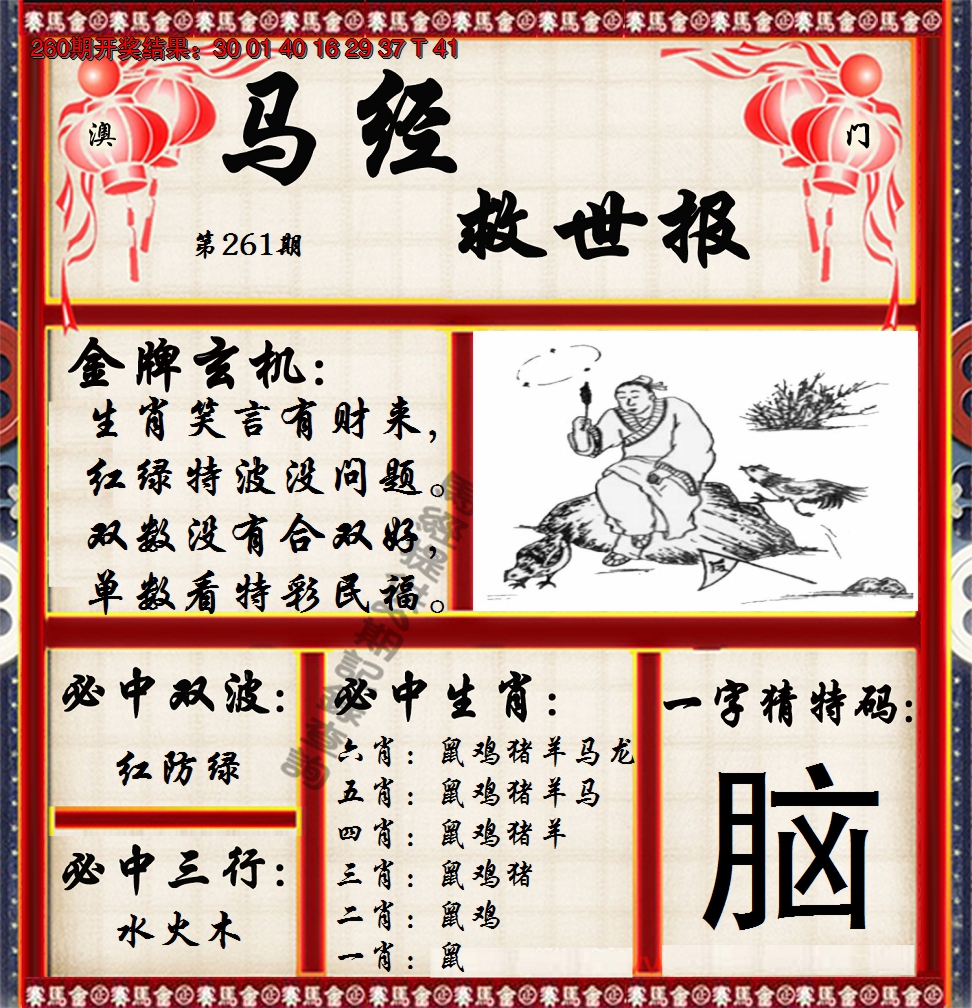 260期开奖结果：30 01 40 16 29 37 T 41
澳
门
马经
救世报
第261期
金牌玄机：
生肖笑言有财来，
红绿特波没问题。
双数没有合双好，
单数看特彩民福。
必中双波：
红防绿
必中三行：
水火木
必中生肖：
六肖：鼠鸡猪羊马龙
五肖：鼠鸡猪羊马
四肖：鼠鸡猪羊
三肖：鼠鸡猪
二肖：鼠鸡
一肖：鼠
一字猜特码：
脑